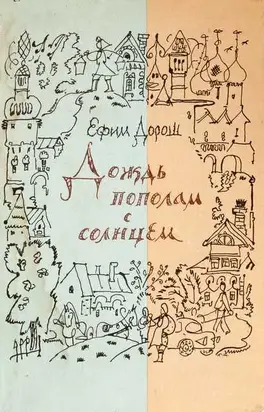 Ефим Дорош
Дождь
пополам
с
солнцем